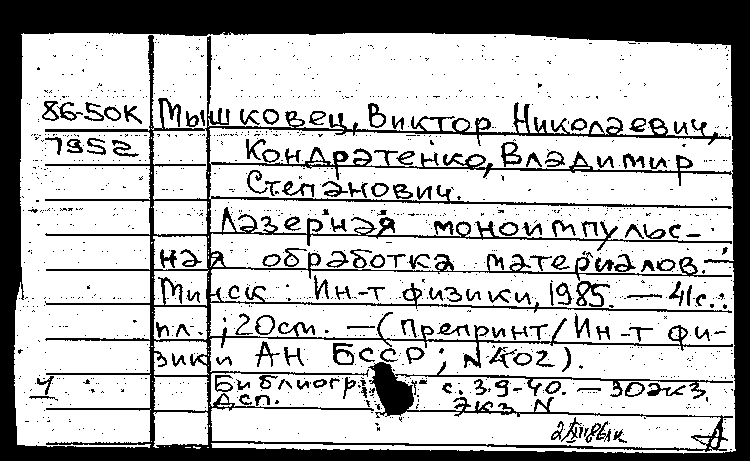 86-50К Мышковец, Виктор Николаевич,
7952 Кондратенко, Владимир
Степанович.
Лазерная моноимпульс-
ная обработка материалов. —
Минск : Ин-т физики, 1985. — 41с. :
ил. ; 20см. — (Препринт/Ин-т фи-
зики АН БССР ; N 402).
Библиогр с. 39-40. — 30экз.
Дсп. Экз. N